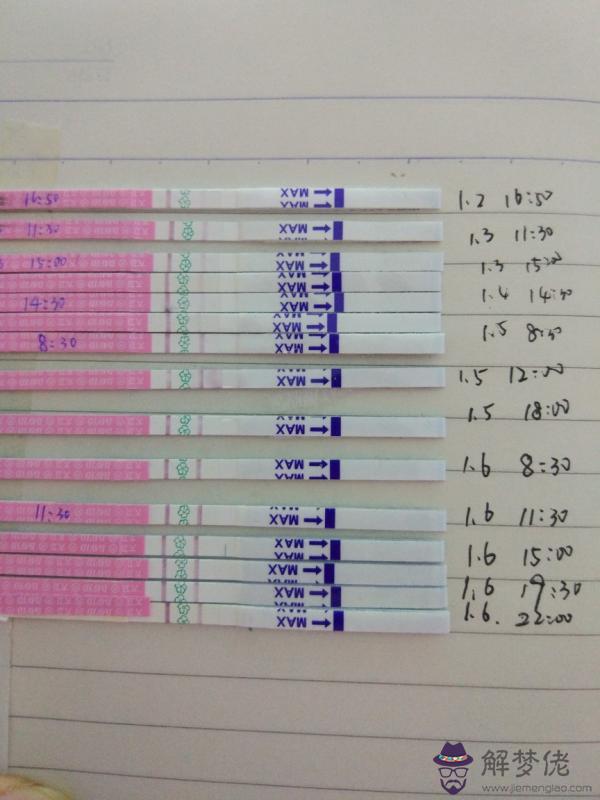 16:50 MAX 1.2 16:50
11:30 MAX 1.3 11:30
15:00 MAX 1.3 15:00
MAX
14:30 MAX 1.4 14:30
MAX
8:30 MAX 1.5 8:30
MAX 1.5 12:00
MAX 1.5 18:00
MAX 1.6 8:30
11:30 MAX 1.6 11:30
MAX 1.6 15:00
MAX
MAX 1.6 19:30
MAX 1.6. 22:00
解梦佬
www.jiemenglao.com